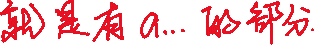 就是有a...的部分.